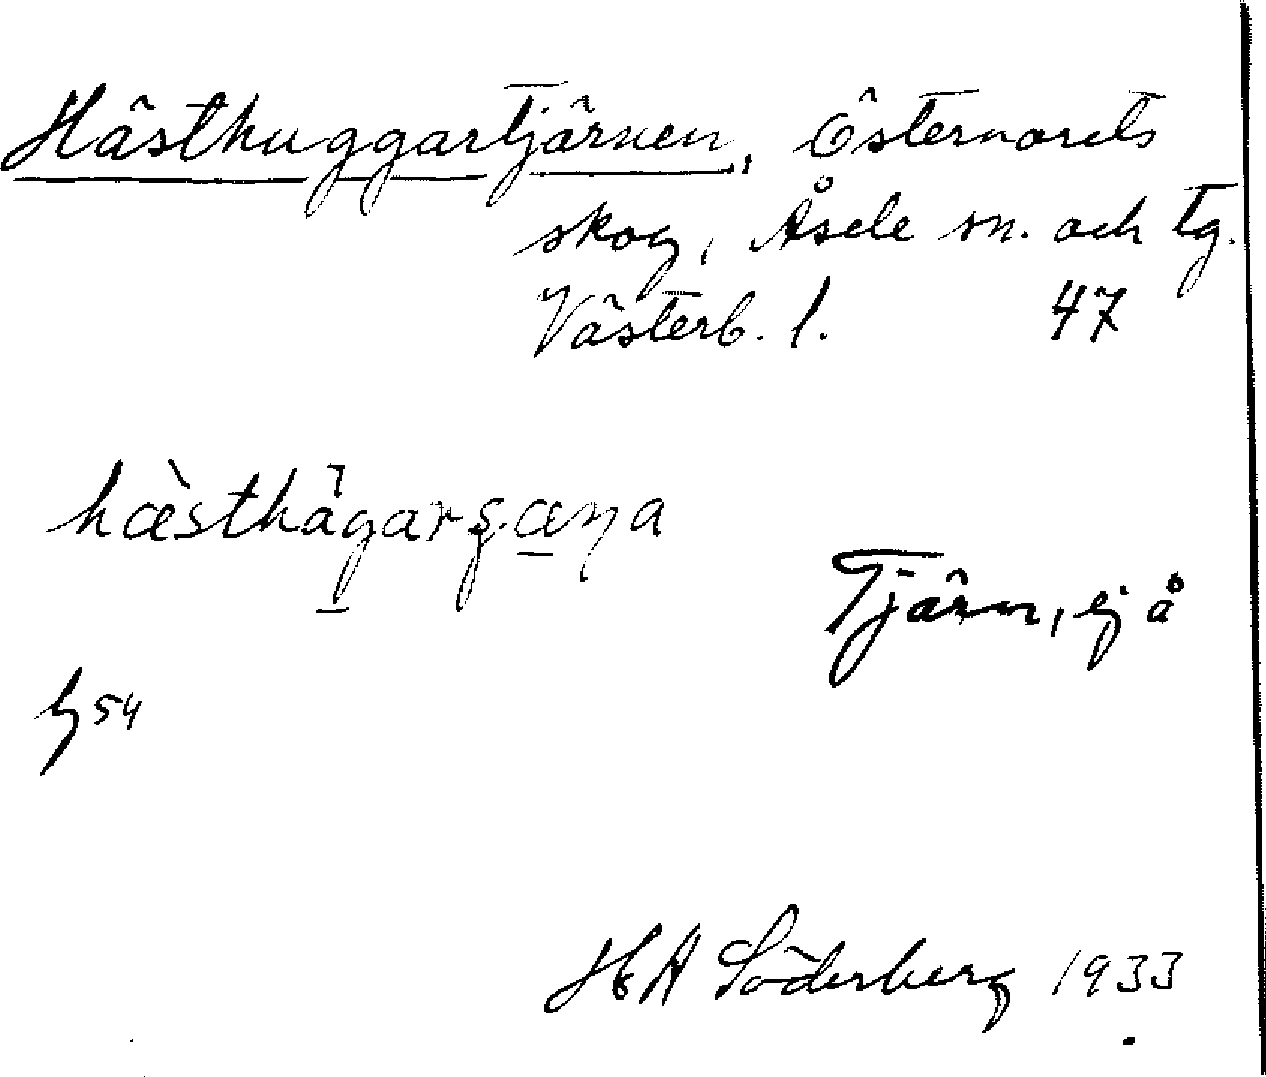 Hästhuggartjärnen, Östernorets
skog, Åsele sn. och tg.
Västerb. l. 47
hæ̀sthågarʂæɳa
Tjärn, ej å
54
H A Söderberg 1933